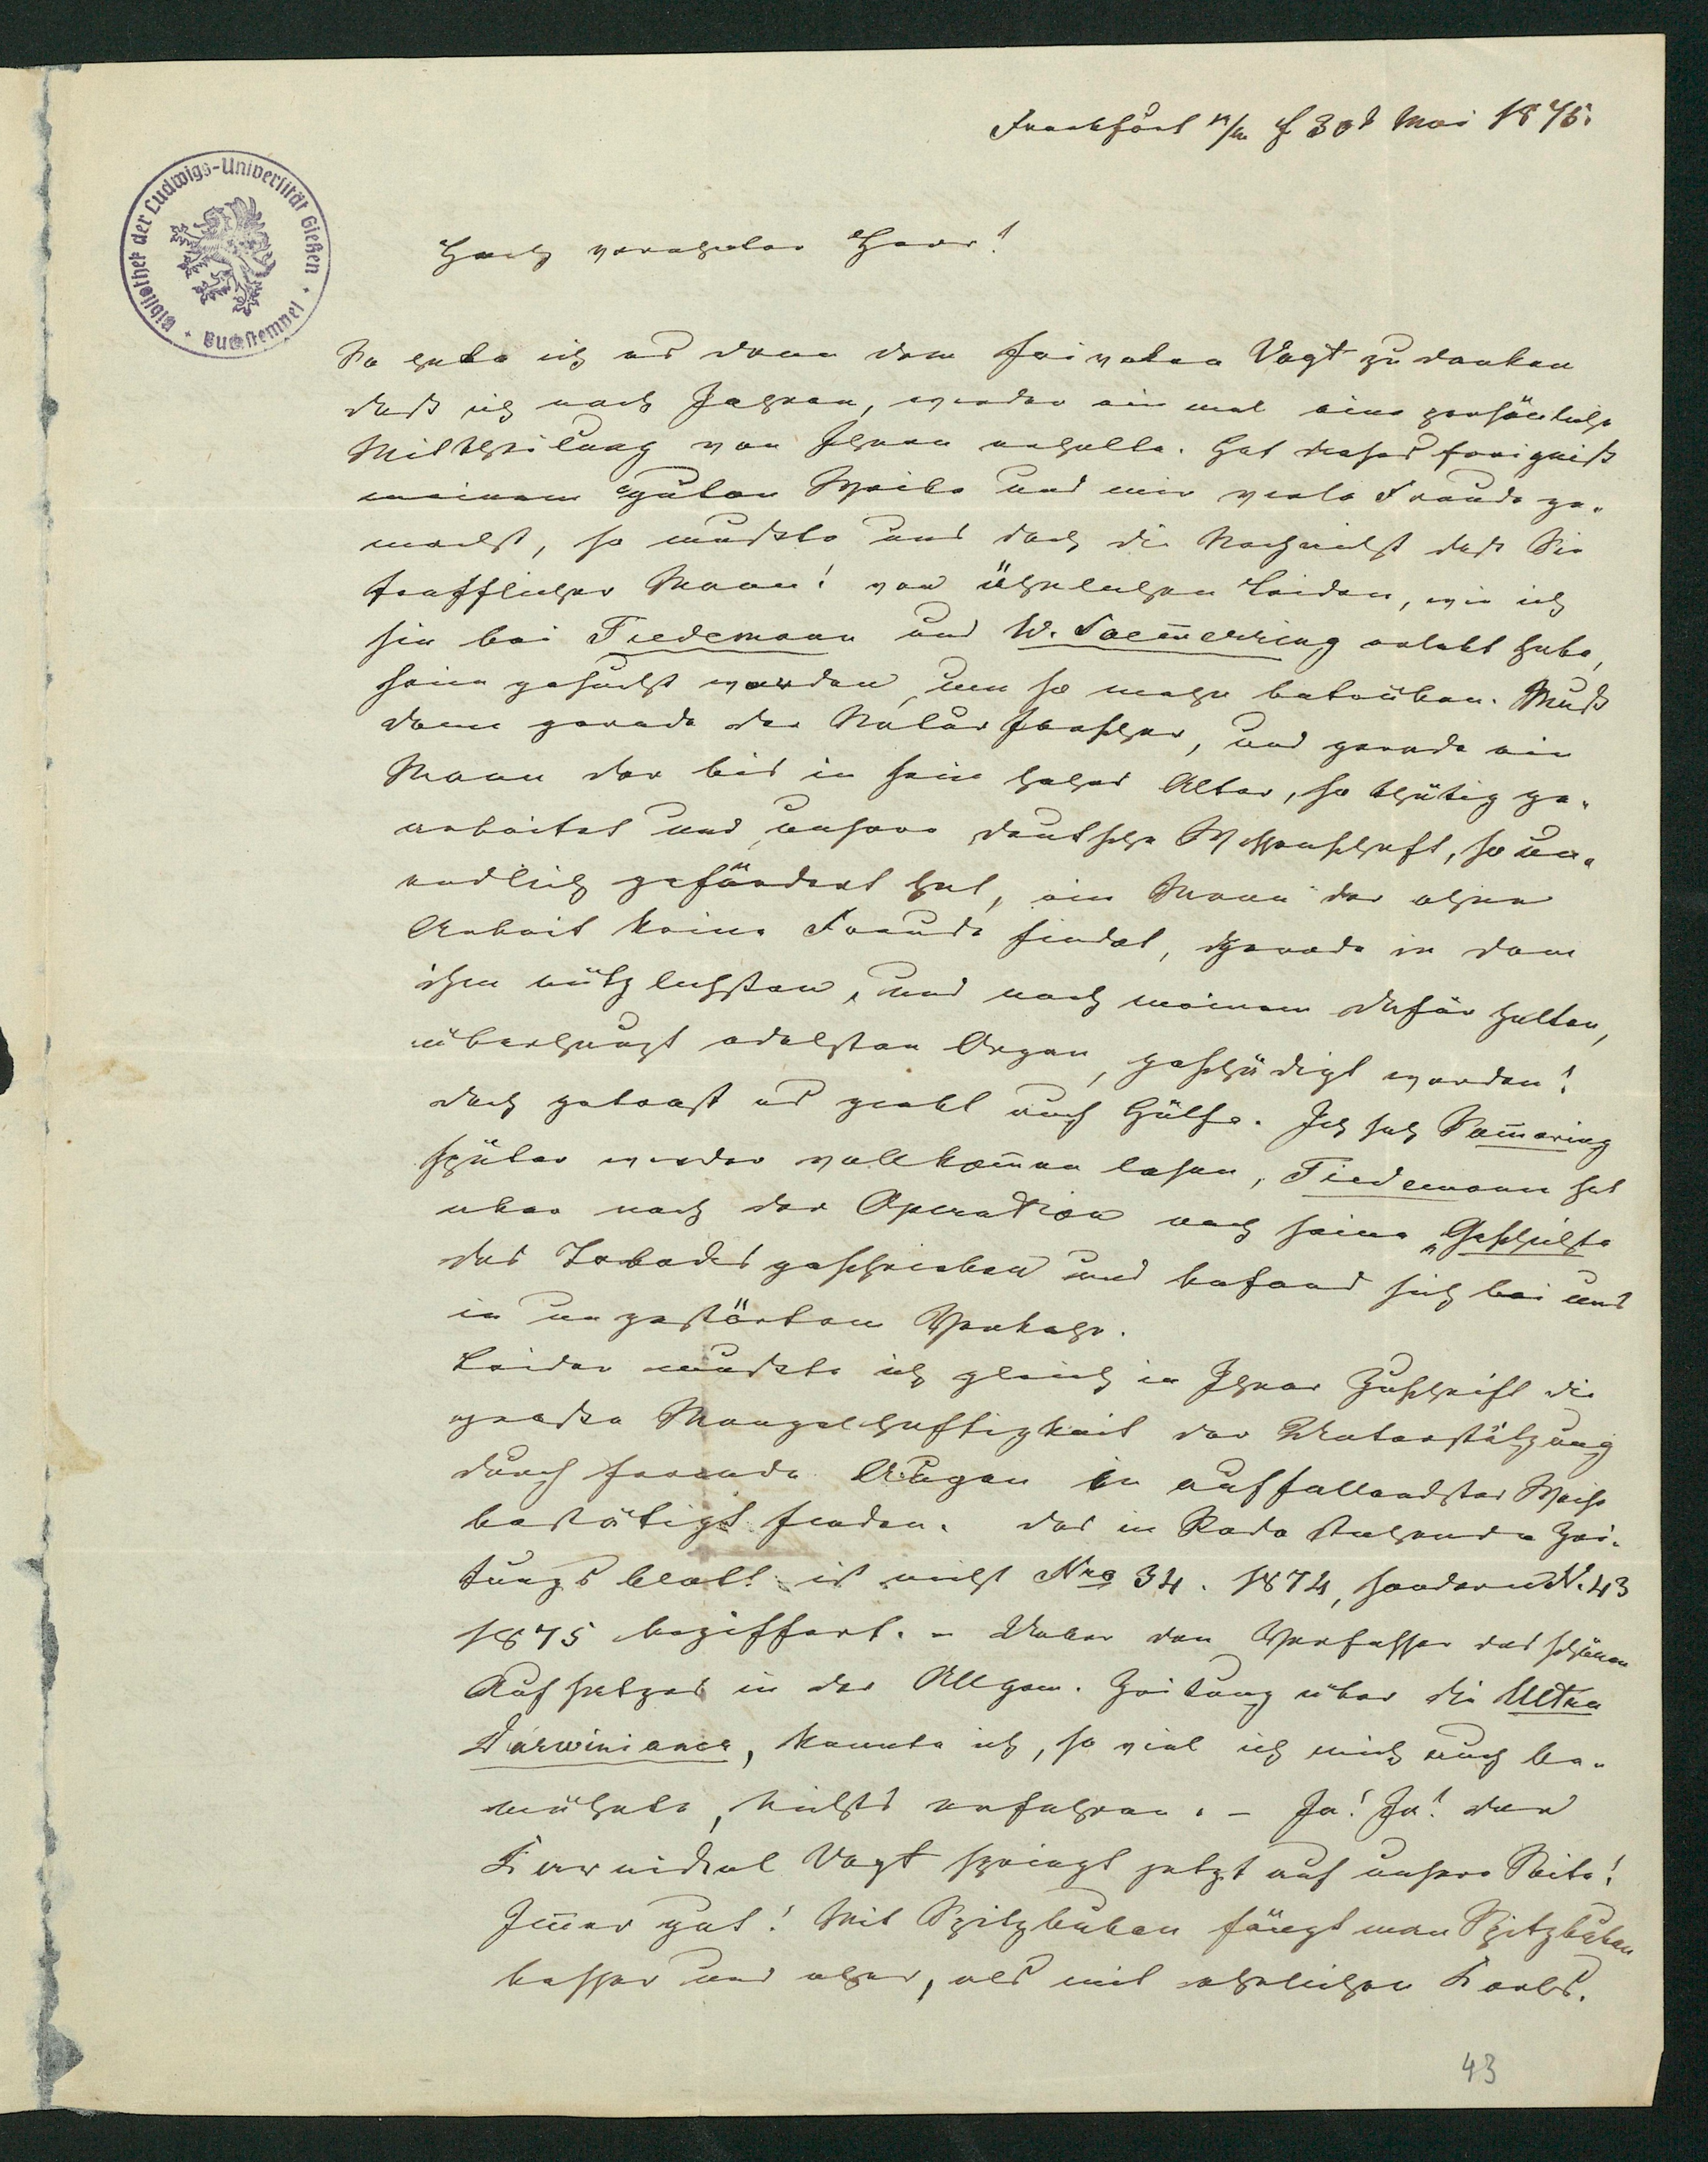 Frankfurt a/m d 30t Mai 1875.
Bibliothek der Ludwigs-Universität Gießen · Buchstempel ·
Hoch verehrter Herr!
So habe ich es denn dem frivolen Vogt zu danken
daß ich nach Jahren, wieder ein mal eine persönliche
Mittheilung von Ihnen erhalte. Hat dieses Ereigniß
meinem guten Weibe und mir viele Freude ge-
macht, so mußte uns doch die Nachricht daß Sie
trefflicher Mann! von ähnlichen Leiden, wie ich
sie bei Tiedemann und W. Soem̄erring erlebt habe,
heim gesucht werden, um so mehr betrüben. Muß
denn gerade der Naturforscher, und gerade ein
Mann der bis in sein hohes Alter, so thätig ge-
arbeitet und unsere deutsche Wissenschaft, so un-
endlich gefördert hat, ein Mann der ohne
Arbeit keine Freude findet, gerade in dem
ihm nützlichsten, und nach meinem dafür halten,
überhaupt edelsten Organ, geschädigt werden!
doch getrost es giebt auch Hülfe. Ich sah Söm̄ering
später wieder vollkom̄en lesen, Tiedemann hat
aber nach der Operation noch seine „Geschichte
des Tabacks geschrieben und befand sich bei uns
in ungestörtem Verkehr.
Leider mußte ich gleich in Ihrer Zuschrift die
große Mangelhaftigkeit der Unterstützung
durch fremde Augen in auffallendster Weise
bestätigt finden. das in Rede stehende Zei-
tungs blatt ist nicht Nro 34. 1874, sondern N. 43
1875 beziffert. – Ueber den Verfasser des schönen
Aufsatzes in der Allgem. Zeitung über die Ultra
Darwinianer, konnte ich, so viel ich mich auch be-
mühete, Nichts erfahren. – Ja! Ja! der
Vogt springt jetzt auf unsere Seite!
Im̄er gut! Mit Spitzbuben fängt man Spitzbuben
besser und eher, als mit ehrlichen Kerls.
43